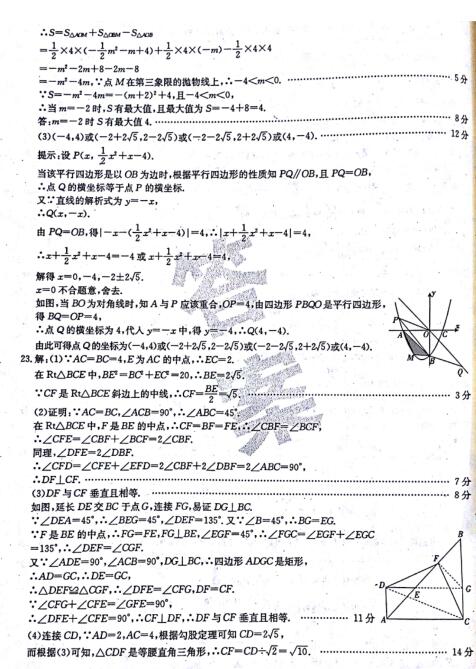 ∴S=S△AOM+S△OBM−S△AOB
=1/2×4×(−1/2m²−m+4)+1/2×4×(−m)−1/2×4×4
=−m²−2m+8−2m−8
=−m²−4m,∵点M在第三象限的抛物线上,∴−4<m<0. 5分
∵S=−m²−4m=−(m+2)²+4,且−4<m<0,
∴当m=−2时,S有最大值,且最大值为S=−4+8=4.
答:m=−2时S有最大值4. 8分
(3)(−4,4)或(−2+2√5,2−2√5)或(−2−2√5,2+2√5)或(4,−4). 12分
提示:设P(x,1/2x²+x−4).
当该平行四边形是以OB为边时,根据平行四边形的性质知PQ∥OB,且PQ=OB,
∴点Q的横坐标等于点P的横坐标.
又∵直线的解析式为y=−x,
∴Q(x,−x).
由PQ=OB,得|−x−(1/2x²+x−4)|=4,∴|x+1/2x²+x−4|=4,
∴x+1/2x²+x−4=−4或x+1/2x²+x−4=4,
解得x=0,−4,−2±2√5.
x=0不合题意,舍去.
如图,当BO为对角线时,知A与P应该重合,OP=4,由四边形PBQO是平行四边形,
得BQ=OP=4,
∴点Q的横坐标为4,代入y=−x中,得y=−4,∴Q(4,−4).
由此可得点Q的坐标为(−4,4)或(−2+2√5,2−2√5)或(−2−2√5,2+2√5)或(4,−4).
y
P
A
O
C
x
M
B
Q
23.解:(1)∵AC=BC=4,E为AC的中点,∴EC=2.
在Rt△BCE中,BE²=BC²+EC²=20,∴BE=2√5.
∵CF是Rt△BCE斜边上的中线,∴CF=BE/2=√5. 3分
(2)证明:∵AC=BC,∠ACB=90°,∴∠ABC=45°.
在Rt△BCE中,F是BE的中点,∴CF=BF=FE,∴∠CBF=∠BCF,
∴∠CFE=∠CBF+∠BCF=2∠CBF.
同理,∠DFE=2∠DBF.
∴∠CFD=∠CFE+∠EFD=2∠CBF+2∠DBF=2∠ABC=90°,
∴DF⊥CF. 7分
(3)DF与CF垂直且相等. 8分
如图,延长DE交BC于点G,连接FG,易证DG⊥BC.
∵∠DEA=45°,∴∠BEG=45°,∠DEF=135°.又∵∠B=45°,∴BG=EG.
∵F是BE的中点,∴FG=FE,FG⊥BE,∠EGF=45°,∴∠FGC=∠EGF+∠EGC
=135°,∴∠DEF=∠CGF.
又∵∠ADE=90°,∠ACB=90°,DG⊥BC,∴四边形ADGC是矩形,
∴AD=GC,∴DE=GC,
∴△DEF≌△CGF,∴∠DFE=∠CFG,DF=CF.
∵∠CFG+∠CFE=∠GFE=90°,
∴∠DFE+∠CFE=90°,∴CF⊥DF,∴DF与CF垂直且相等. 11分
B
F
D
E
G
A
C
(4)连接CD,∵AD=2,AC=4,根据勾股定理可知CD=2√5,
而根据(3)可知,△CDF是等腰直角三角形,∴CF=CD÷√2=√10. 14分
答案